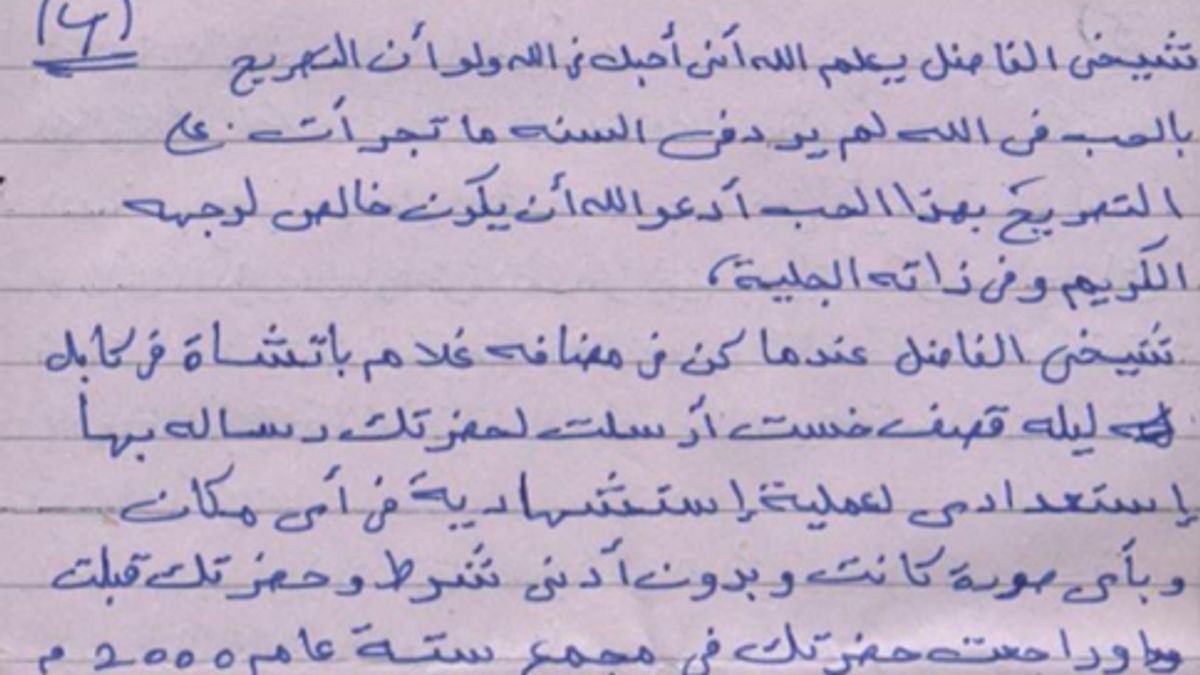 (٢)
شيخى الفاضل يعلم الله أنى أحبك فى الله ولو أن التصريح
بالحب فى الله لم يرد فى السنه ما تجرأت على
التصريح بهذا الحب أدعو الله أن يكون خالص لوجهه
الكريم وفى ذاته الجلية،
شيخى الفاضل عندما كن فى مضافه غلام باتشاة فى كابل
ليله قصف خست أرسلت لحضرتك رساله بها
إستعدادى لعملية إستشهادية فى أى مكان
وبأى صورة كانت وبدون أدنى شروط وحضرتك قبلت
وراجعت حضرتك فى مجمع ستة عام 2000 م